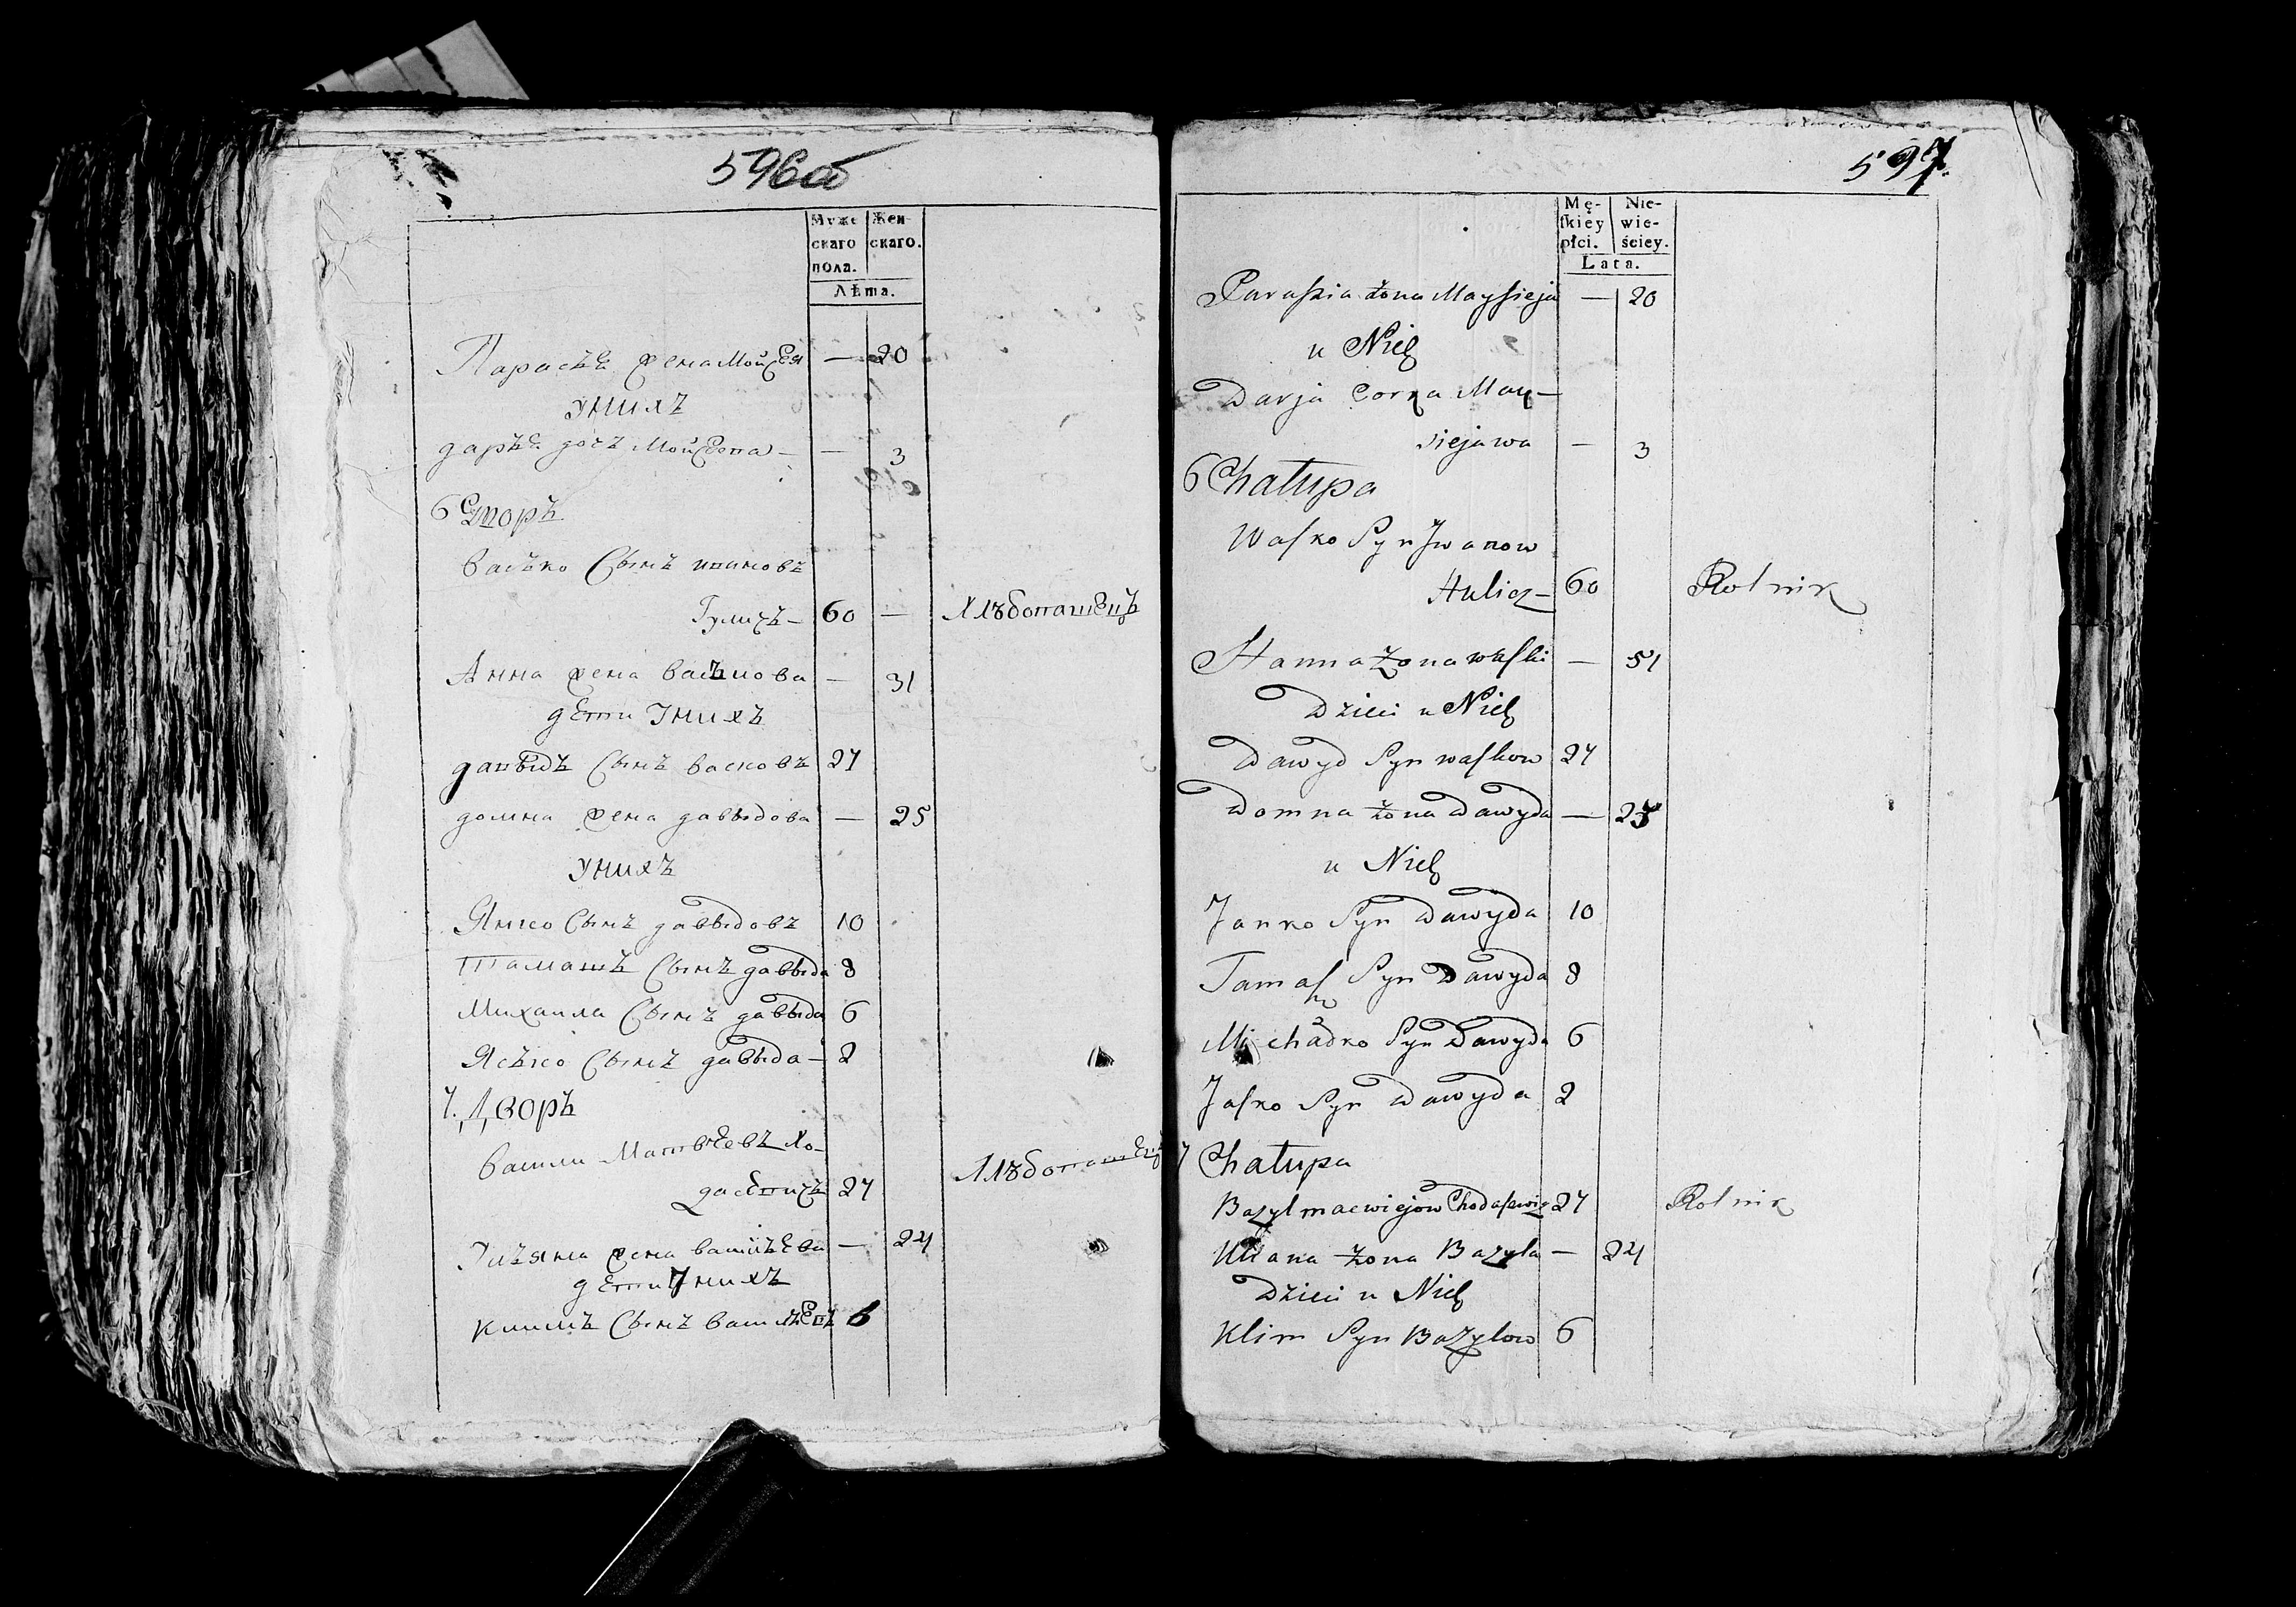 596об
Муже
скаго
пола.
Жен-
скаго.
Лѣта.
Парасья жена Мойсея — 20
У нихъ
Дарья дочь Мойсеева — — 3
6 Дворъ
Васько Сынъ Ивановъ
Гуличъ — 60 — Хлѣбопашецъ
Анна жена Васькова — 31
дети У нихъ
давыдъ Сынъ Васковъ 27
домна жена давыдова — 25
У нихъ
Янко Сынъ давыдовъ 10
Тамашъ Сынъ давыда 8
Михайла Сынъ давыда 6
Ясько Сынъ давыда — 2
7. Дворъ
Василий Матвѣевъ Хо-
дасевичъ 27 Хлѣбопашецъ
Ульяна жена Васильева — 24
дети У нихъ
Климъ Сынъ Васильевъ 6
597.
Mę-
ſkiey
płci.
Nie-
wie-
ściey.
Lata.
Paraſkia żona Mayſieja — 20
u Nich
Darja Corka May-
siejawa — 3
6 Chałupa
Waſko Syn Jwanow
Hulicz — 60 Rolnik
Hanna żona Waſki — 51
Dzieci u Nich
Dawyd Syn waſkow 27
Domna żona Dawyda — 25
u Nich
Janko Syn Dawyda 10
Tamaſz Syn Dawyda 8
Michałko Syn Dawyda 6
Jaſko Syn Dawyda 2
7 Chałupa
Bazyl macwiejow Chodaſewicz 27 Rolnik
Uliana żona Bazyla — 24
Dzieci u Nich
Klim Syn Bazylow 6